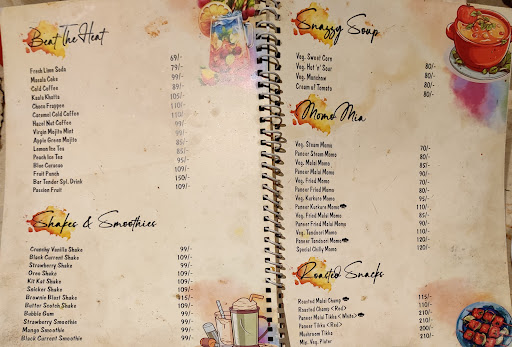 Beat The Heat
Fresh Lime Soda 69/-
Masala Coke 79/-
Cold Coffee 99/-
Kaala Khatta 89/-
Choco Frappee 105/-
Caramel Cold Coffee 110/-
Hazel Nut Coffee 110/-
Virgin Mojito Mint 99/-
Apple Green Mojito 99/-
Lemon Ice Tea 85/-
Peach Ice Tea 85/-
Blue Curacao 95/-
Fruit Punch 109/-
Bar Tender Spl. Drink 150/-
Passion Fruit 109/-
Shakes & Smoothies
Crunchy Vanilla Shake 99/-
Black Current Shake 99/-
Strawberry Shake 99/-
Oreo Shake 99/-
Kit Kat Shake 99/-
Snicker Shake 109/-
Brownie Blast Shake 115/-
Butter Scotch Shake 109/-
Bubble Gum 99/-
Strawberry Smoothie 99/-
Mango Smoothie 99/-
Black Current Smoothie 99/-
Snazzy Soup
Veg. Sweet Corn 80/-
Veg. Hot 'n' Sour 80/-
Veg. Manchow 80/-
Cream of Tomato 80/-
Momo Mia
Veg. Steam Momo 70/-
Paneer Steam Momo 80/-
Veg. Malai Momo 85/-
Paneer Malai Momo 90/-
Veg. Fried Momo 70/-
Paneer Fried Momo 80/-
Veg. Kurkure Momo 95/-
Paneer Kurkure Momo 110/-
Veg. Fried Malai Momo 85/-
Paneer Fried Malai Momo 90/-
Veg. Tandoori Momo 110/-
Paneer Tandoori Momo 120/-
Special Chilly Momo 110/-
Roasted Snacks
Roasted Malai Chaap 115/-
Roasted Chaap <Red> 110/-
Paneer Malai Tikka <White> 210/-
Paneer Tikka <Red> 200/-
Mushroom Tikka 200/-
Mix. Veg. Plater